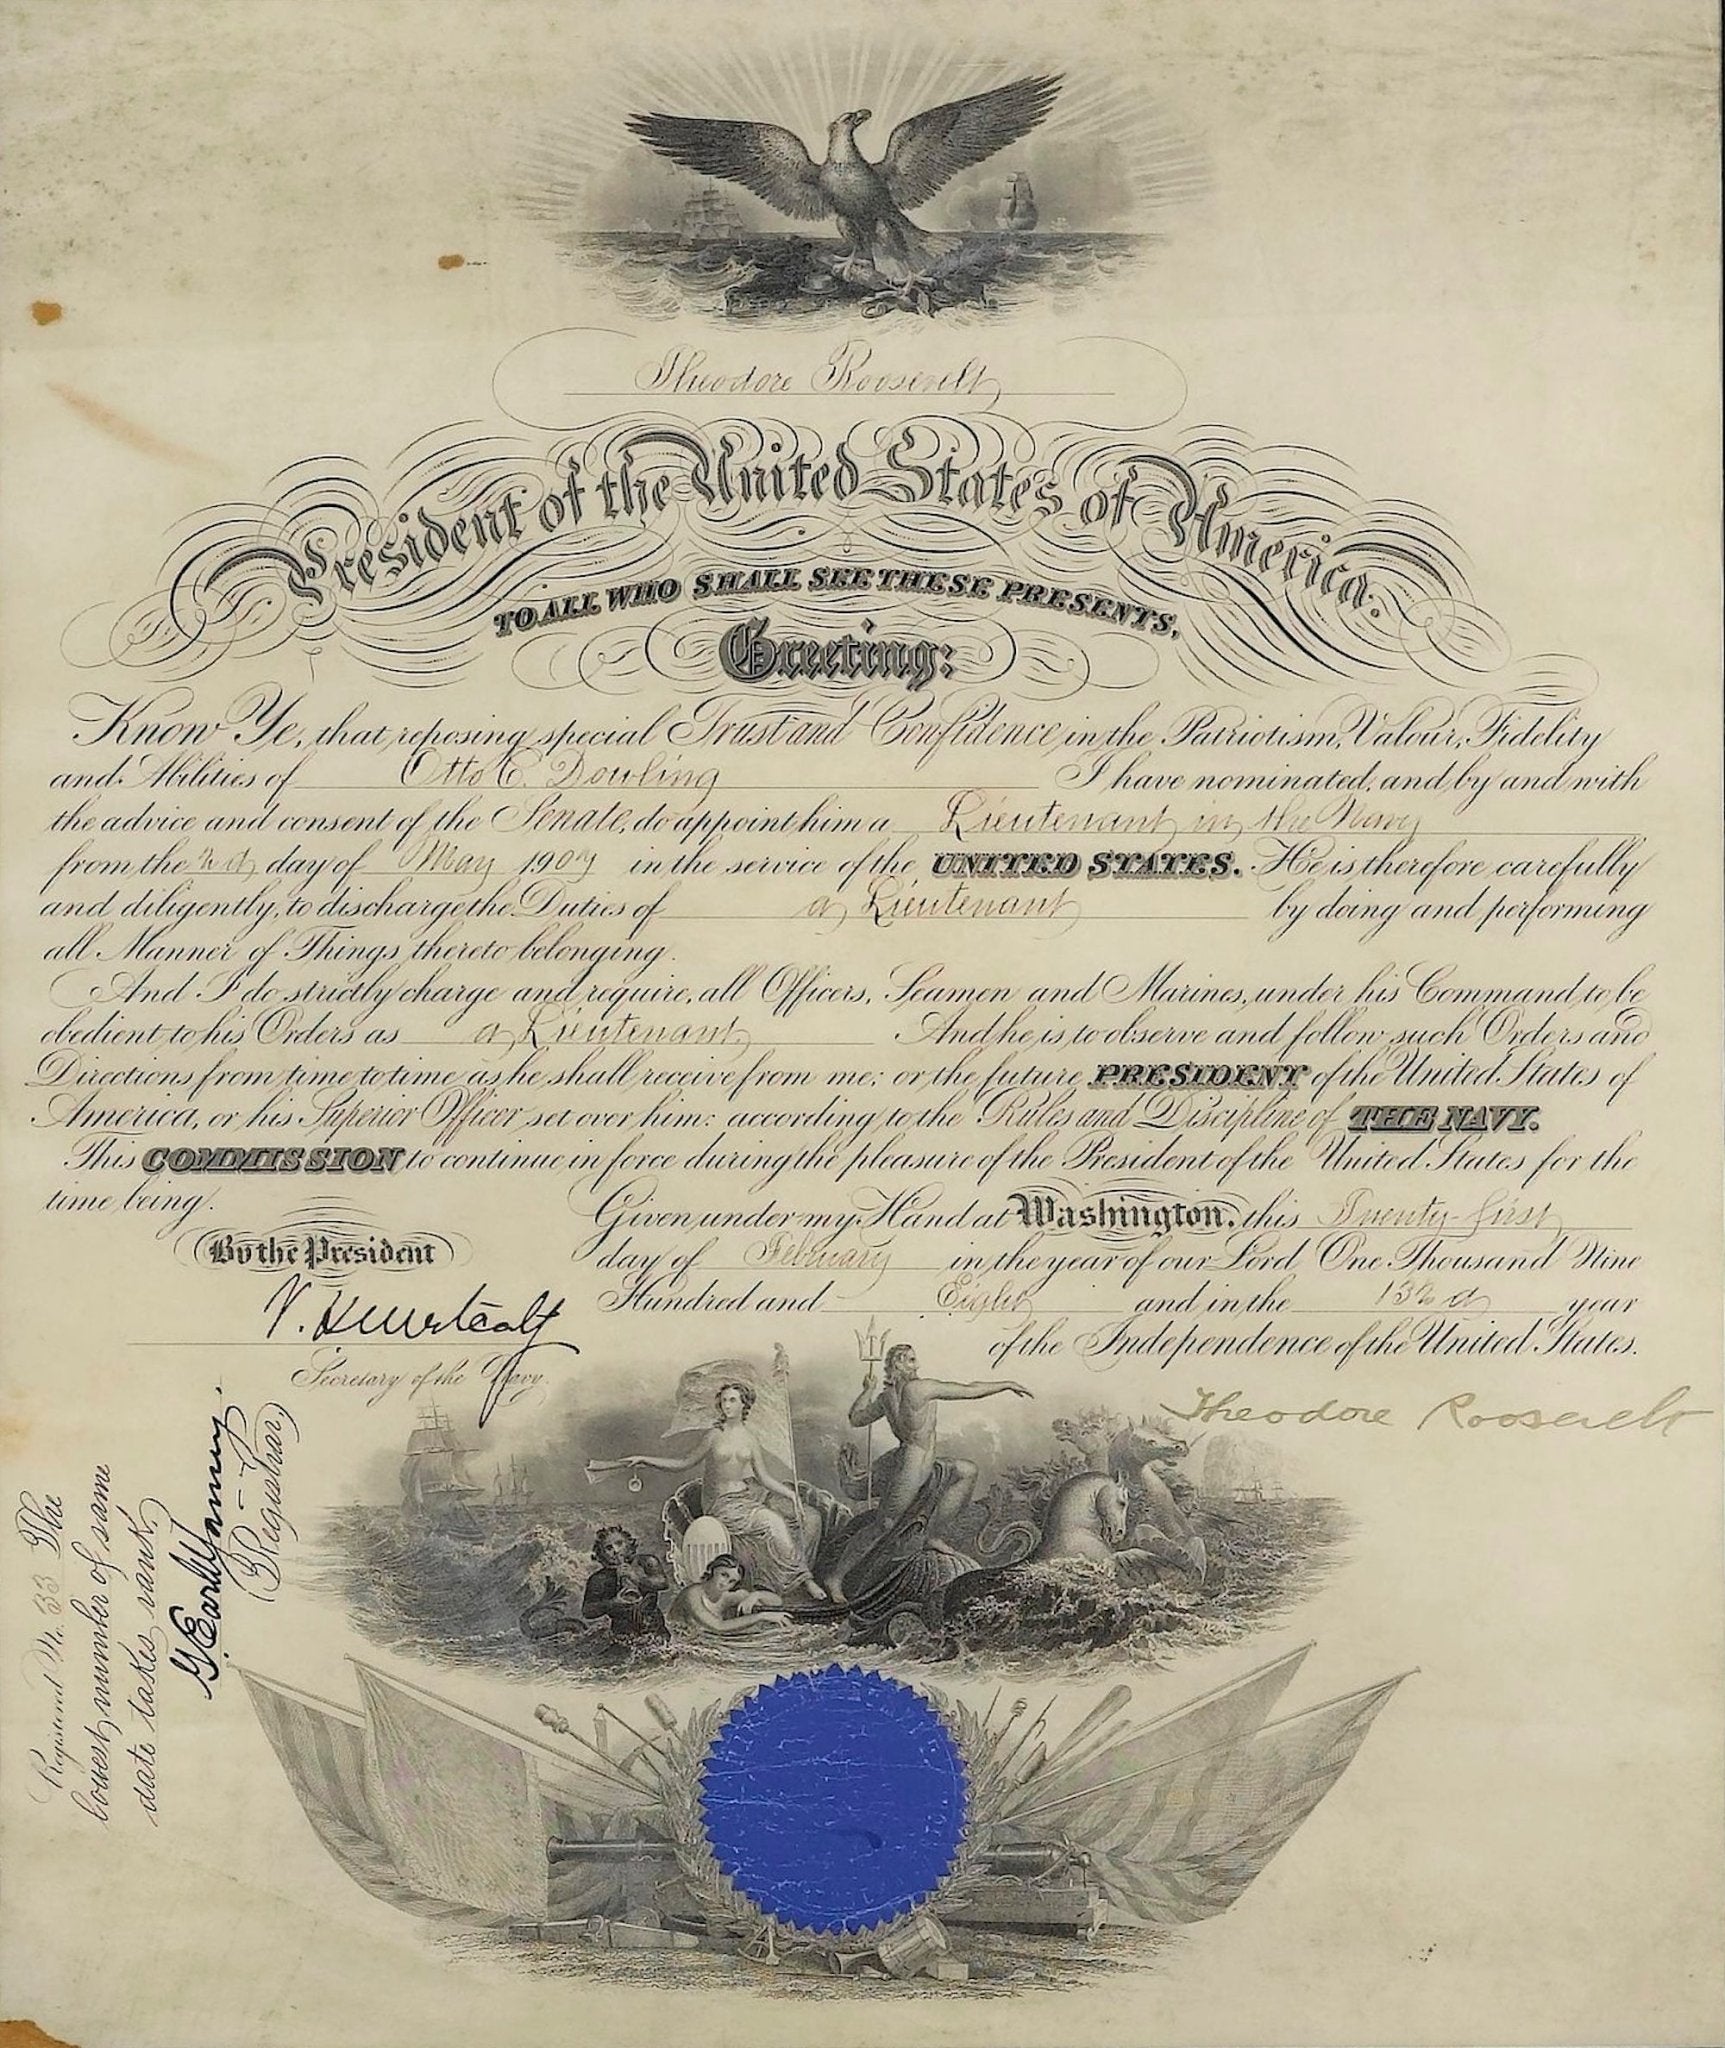 Theodore Roosevelt
President of the United States of America.
TO ALL WHO SHALL SEE THESE PRESENTS,
Greeting:
Know Ye, that reposing special Trust and Confidence in the Patriotism, Valour, Fidelity
and Abilities of Otto C. Dowling I have nominated, and by and with
the advice and consent of the Senate, do appoint him a Lieutenant in the Navy
from the 2d day of May 1907 in the service of the UNITED STATES. He is therefore carefully
and diligently, to discharge the Duties of a Lieutenant by doing and performing
all Manner of Things thereto belonging.
And I do strictly charge and require, all Officers, Seamen and Marines, under his Command, to be
obedient to his Orders as a Lieutenant. And he is to observe and follow such Orders and
Directions from time to time as he shall receive from me; or the future PRESIDENT of the United States of
America, or his Superior Officer set over him: according to the Rules and Discipline of THE NAVY.
This COMMISSION to continue in force during the pleasure of the President of the United States for the
time being.
Given under my Hand at Washington, this Twenty-first
By the President
day of February in the year of our Lord One Thousand Nine
Hundred and Eight and in the 132d year
of the Independence of the United States.
V. H. Metcalf
Secretary of the Navy.
Theodore Roosevelt
Registered No. 33 The
lowest number of same
date takes rank
(Registrar)